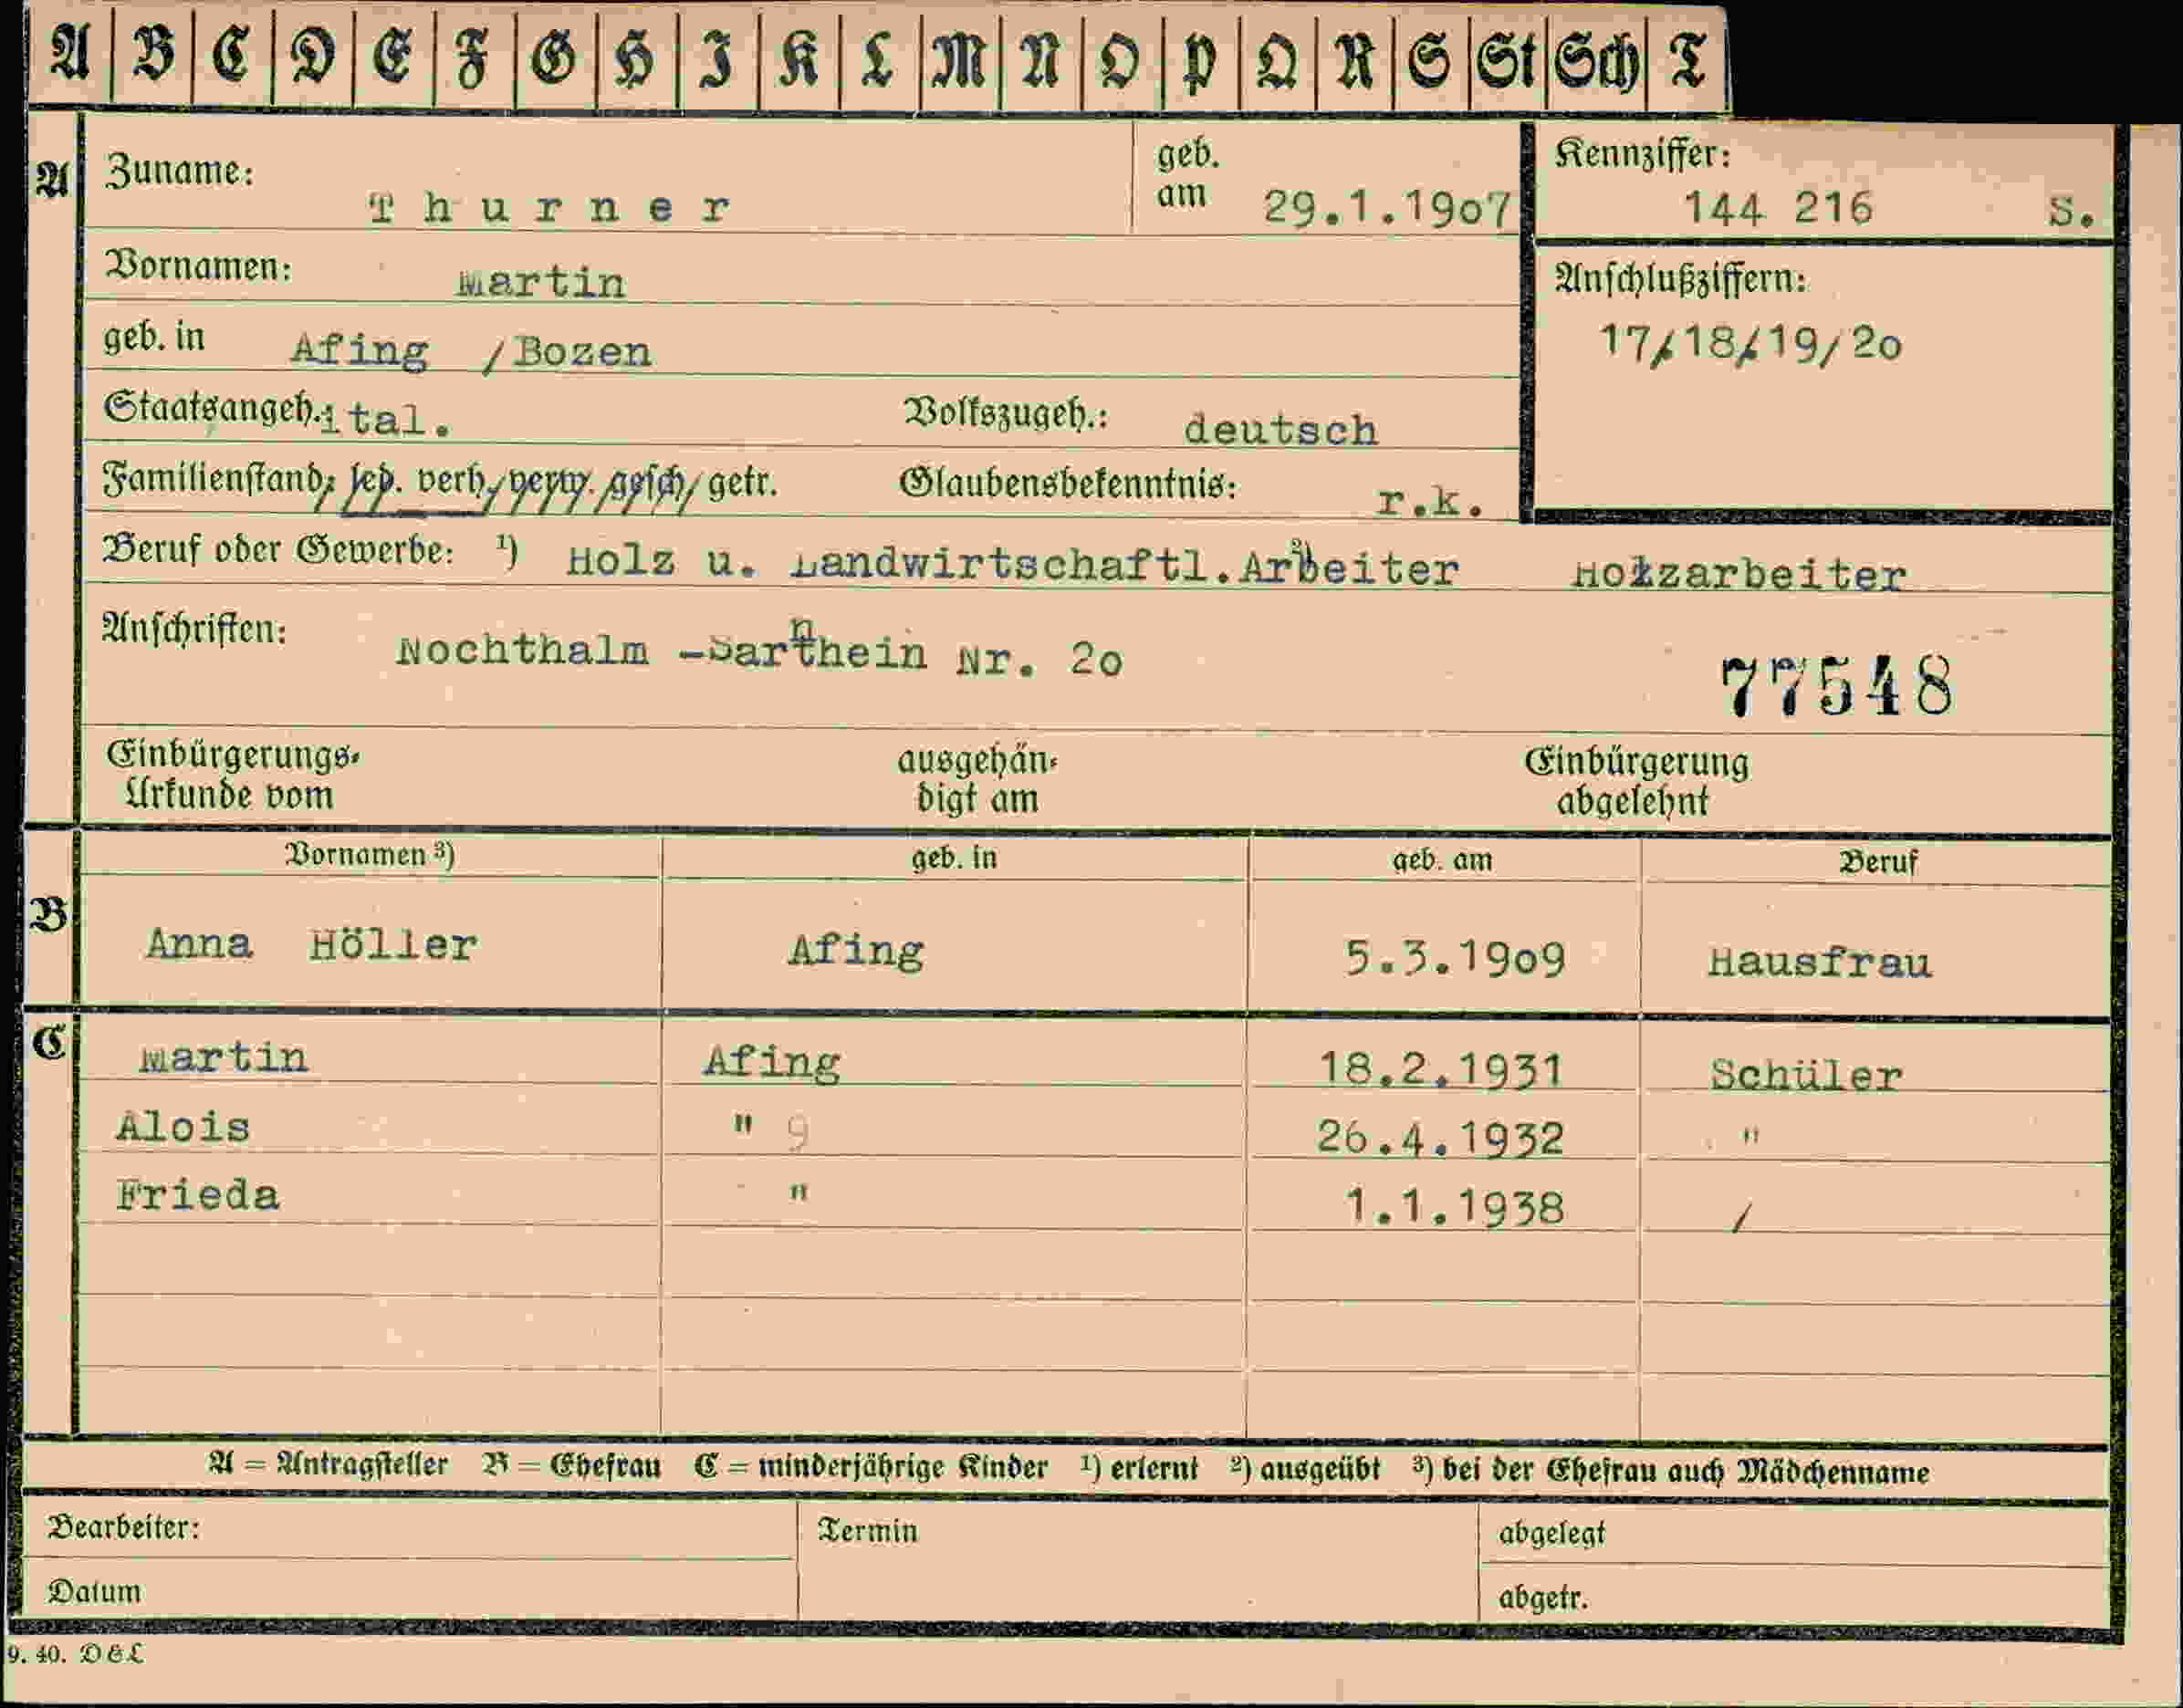 A B C D E F G H I K L M N O P Q R S St Sch T
A Zuname: Thurner geb. am 29.1.19o7 Kennziffer: 144 216 S.
Vornamen: Martin Anschlußziffern:
geb. in Afing /Bozen 17/18/19/2o
Staatsangeh.: ital. Volkszugeh.: deutsch
Familienstand: led. verh. verw. gesch. getr. Glaubensbekenntnis: r.k.
Beruf oder Gewerbe: ¹) Holz u. Landwirtschaftl.Arbeiter ²) Holzarbeiter
Anschriften: Nochthalm -Sarnthein Nr. 2o
77548
Einbürgerungs-Urkunde vom ausgehändigt am Einbürgerung abgelehnt
Vornamen ³) geb. in geb. am Beruf
B Anna Höller Afing 5.3.19o9 Hausfrau
C Martin Afing 18.2.1931 Schüler
Alois " 9 26.4.1932 "
Frieda " 1.1.1938 /
A = Antragsteller B = Ehefrau C = minderjährige Kinder ¹) erlernt ²) ausgeübt ³) bei der Ehefrau auch Mädchenname
Bearbeiter: Termin abgelegt
Datum abgetr.
9. 40. D & L